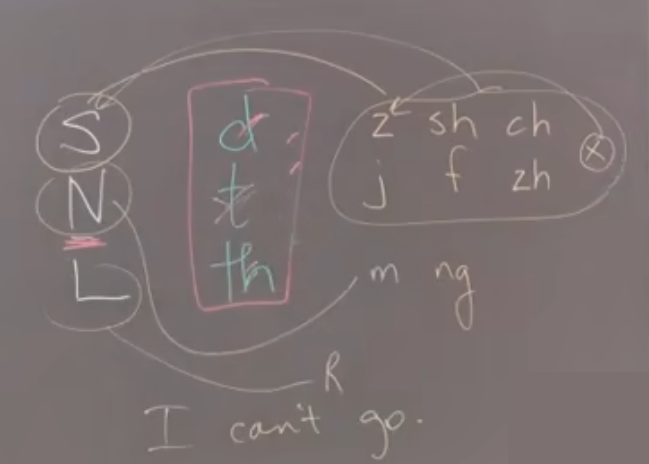 S d z sh ch x
N t j f zh
L th m ng
R
I can't go.